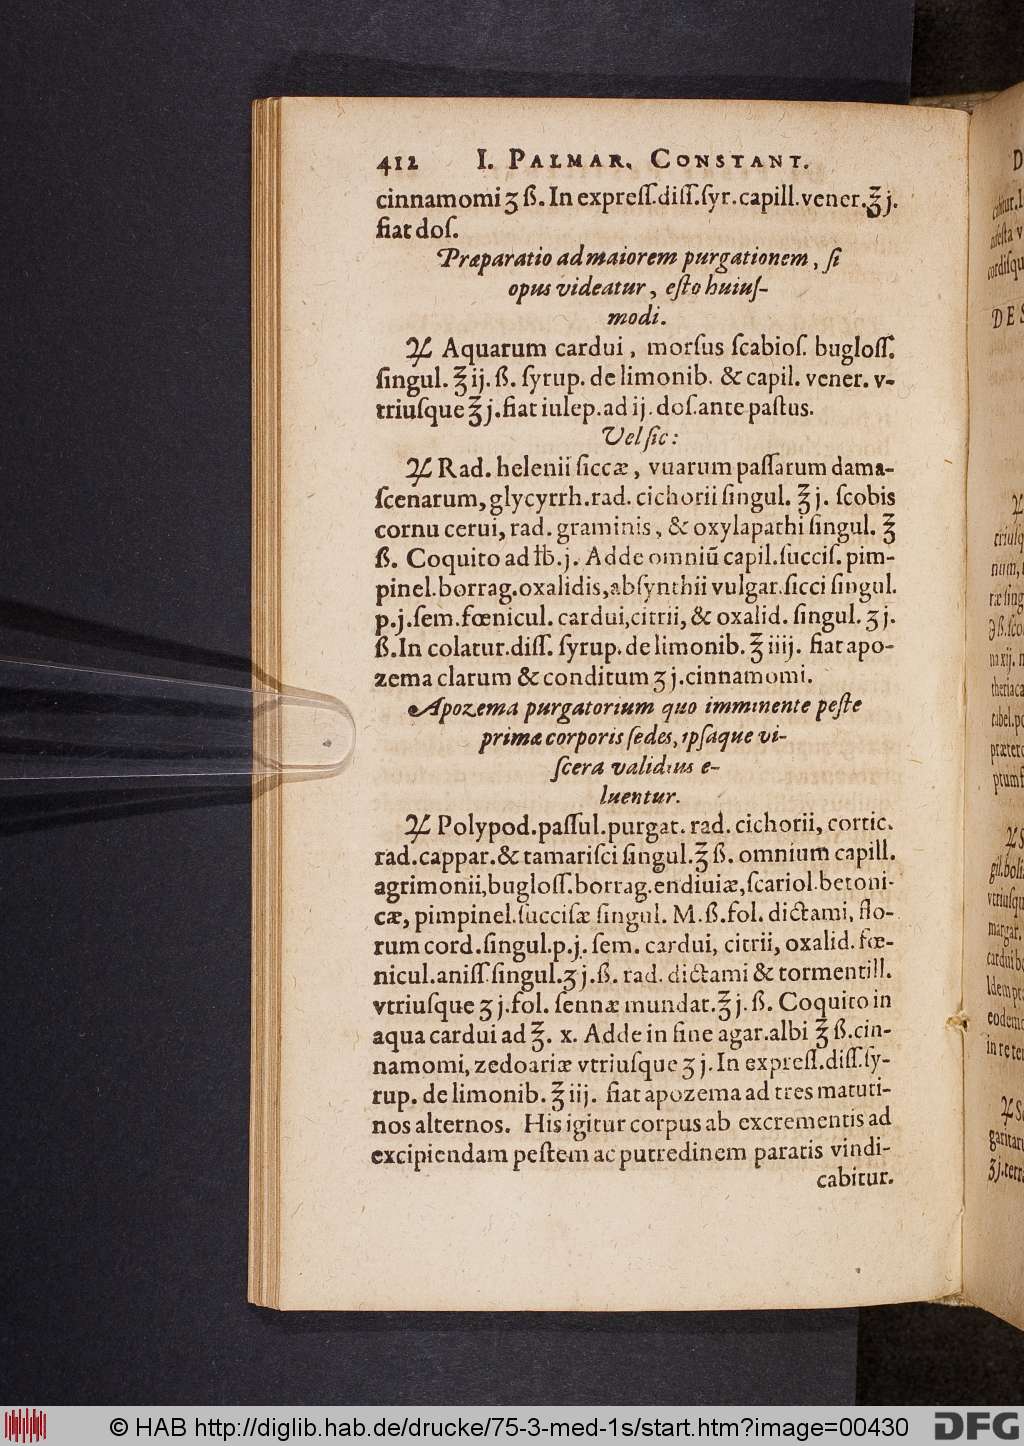 412 I. PALMAR. CONSTANT.
cinnamomi ʒ ß. In expreſſ.diſſ.ſyr.capill.vener.℥ j.
fiat doſ.
Præparatio ad maiorem purgationem, ſi
opus videatur, eſto huiuſ-
modi.
♃ Aquarum cardui, morſus ſcabioſ. bugloſſ.
ſingul. ℥ ij. ß. ſyrup. de limonib. & capil. vener. v-
triuſque ℥ j. fiat iulep. ad ij. doſ. ante paſtus.
Vel ſic:
♃ Rad. helenii ſiccæ, vuarum paſſarum dama-
ſcenarum, glycyrrh.rad. cichorii ſingul. ℥ j. ſcobis
cornu cerui, rad. graminis, & oxylapathi ſingul. ℥
ß. Coquito ad ℔.j. Adde omniũ capil.ſucciſ. pim-
pinel.borrag.oxalidis,abſynthii vulgar.ſicci ſingul.
p.j.ſem.fœnicul. cardui,citrii, & oxalid. ſingul. ʒ j.
ß. In colatur.diſſ. ſyrup. de limonib. ℥ iiij. fiat apo-
zema clarum & conditum ʒ j.cinnamomi.
Apozema purgatorium quo imminente peſte
primæ corporis ſedes, ipſaque vi-
ſcera validius e-
luentur.
♃ Polypod.paſſul.purgat. rad. cichorii, cortic.
rad.cappar.& tamariſci ſingul.℥ ß. omnium capill.
agrimonii,bugloſſ.borrag.endiuiæ,ſcariol.betoni-
cæ, pimpinel.ſucciſæ ſingul. M.ß.fol. dictami, flo-
rum cord.ſingul.p.j. ſem. cardui, citrii, oxalid. fœ-
nicul.aniſſ.ſingul.ʒ j.ß. rad. dictami & tormentill.
vtriuſque ʒ j.fol. ſennæ mundat.℥ j. ß. Coquito in
aqua cardui ad ℥. x. Adde in fine agar.albi ℥ ß.cin-
namomi, zedoariæ vtriuſque ʒ j. In expreſſ.diſſ.ſy-
rup. de limonib. ℥ iij. fiat apozema ad tres matuti-
nos alternos. His igitur corpus ab excrementis ad
excipiendam peſtem ac putredinem paratis vindi-
cabitur.
© HAB http://diglib.hab.de/drucke/75-3-med-1s/start.htm?image=00430
DFG